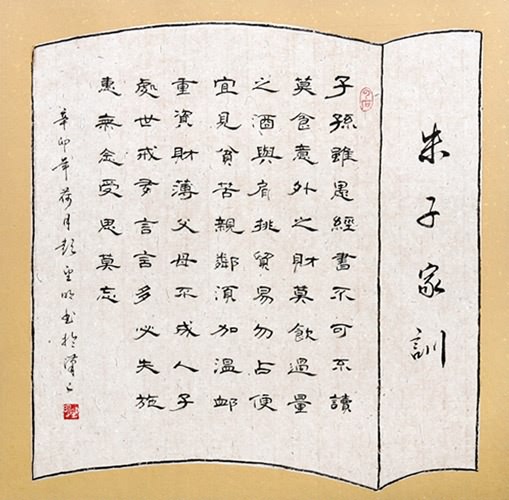 朱子家訓
子孫雖愚經書不可不讀
莫貪意外之財莫飲過量
之酒與肩挑貿易勿占便
宜見貧苦親鄰須加溫卹
重資財薄父母不成人子
處世戒多言言多必失施
惠無念受恩莫忘
辛卯年荷月彭望明書於漢上